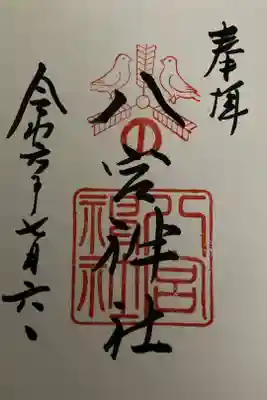 奉拝
八宮神社
八宮
神社
令和六年七月六日